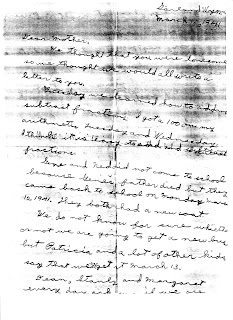 Garland, Wyom
March 11, 1941
Dear Mother,
We thought that you were lonesome
so we thought we would all write a
letter to you.
Tuesday we learned how to add and
subtract fractions. I got a 100 in my
arithmetic Tuesday and Wednesday
I think it is to add and subtract
fractions.
Gene and Ned did not come to school
because Gene's father died but they
came back to school on Monday March
10, 1941. They both had a new coat
We do not know for sure whether
or not we are going to get a new bus
but Patricia and a lot of other kids
say that we'll get it March 13.
Dean, Stanly and Margaret
every day and we are